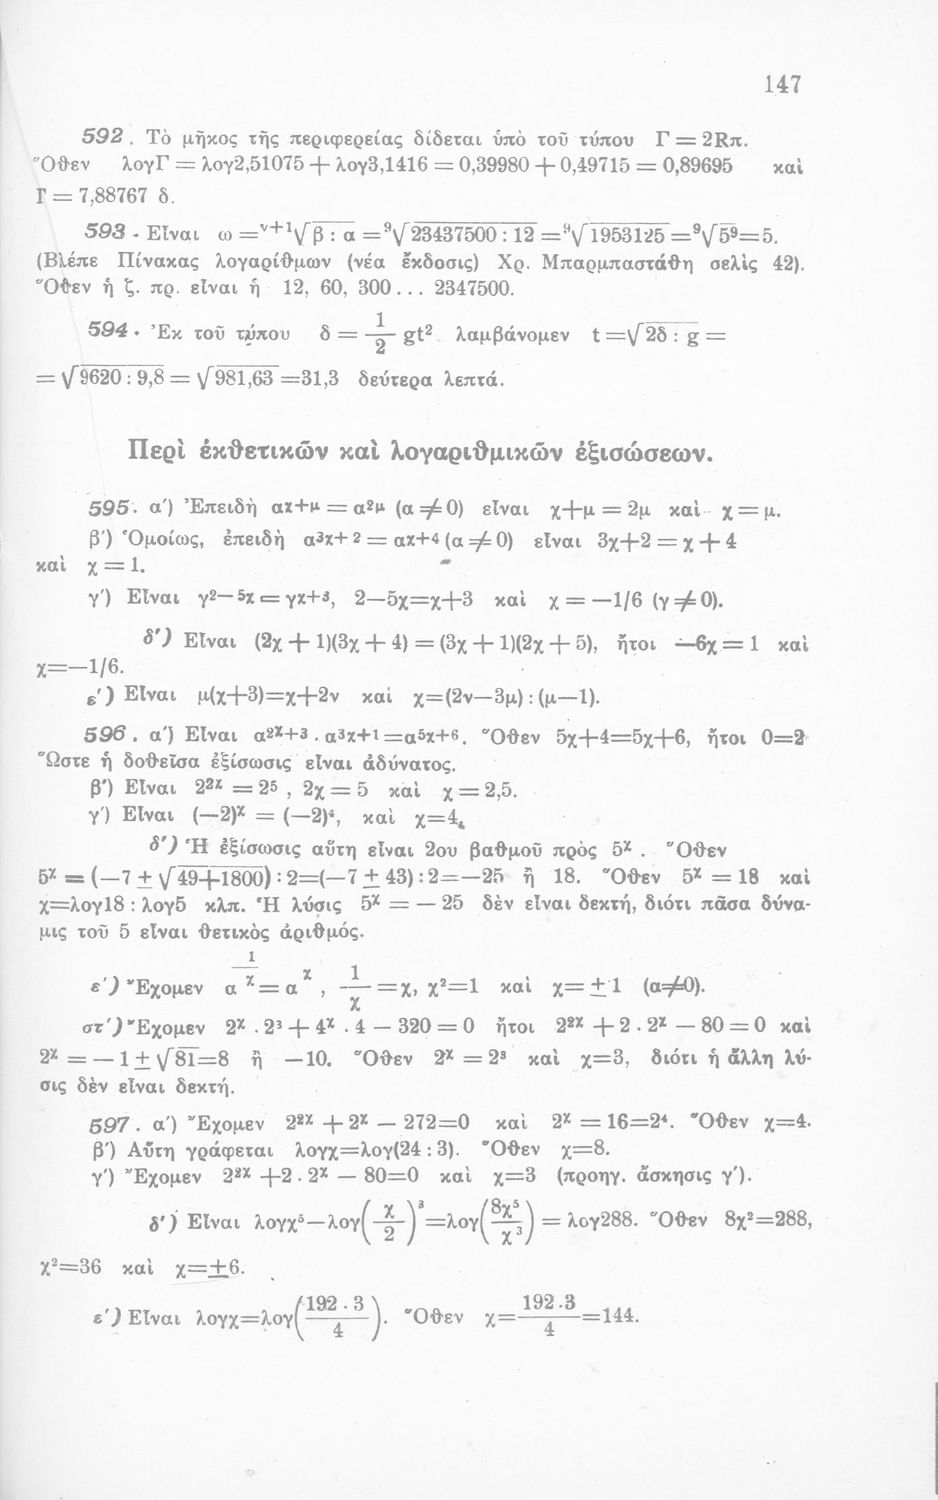 147
592. Τὸ μῆκος τῆς περιφερείας δίδεται ὑπὸ τοῦ τύπου Γ = 2Rπ.
Ὅθεν λογΓ = λογ2,51075 + λογ3,1416 = 0,39980 + 0,49715 = 0,89695 καὶ
Γ = 7,88767 δ.
593. Εἶναι ω = ᵛ⁺¹√β : α = ⁹√23437500 : 12 = ⁹√1953125 = ⁹√5⁹ = 5.
(Βλέπε Πίνακας λογαρίθμων (νέα ἔκδοσις) Χρ. Μπαρμπαστάθη σελὶς 42).
Ὅθεν ἡ ζ. πρ. εἶναι ἡ 12, 60, 300... 2347500.
594. Ἐκ τοῦ τύπου δ = 1/2 gt² λαμβάνομεν t = √2δ : g =
= √9620 : 9,8 = √981,63 = 31,3 δεύτερα λεπτά.
Περὶ ἐκθετικῶν καὶ λογαριθμικῶν ἐξισώσεων.
595. α') Ἐπειδὴ αᵡ⁺ᵘ = α²ᵘ (α ≠ 0) εἶναι χ+μ = 2μ καὶ χ = μ.
β') Ὁμοίως, ἐπειδὴ α³ᵡ⁺² = αᵡ⁺⁴ (α ≠ 0) εἶναι 3χ+2 = χ + 4
καὶ χ = 1.
γ') Εἶναι γ²⁻⁵ᵡ = γᵡ⁺³, 2—5χ=χ+3 καὶ χ = —1/6 (γ ≠ 0).
δ') Εἶναι (2χ + 1)(3χ + 4) = (3χ + 1)(2χ + 5), ἤτοι —6χ = 1 καὶ
χ=—1/6.
ε') Εἶναι μ(χ+3)=χ+2ν καὶ χ=(2ν—3μ) : (μ—1).
596. α') Εἶναι α²ᵡ⁺³ . α³ᵡ⁺¹ = α⁵ᵡ⁺⁶. Ὅθεν 5χ+4=5χ+6, ἤτοι 0=2
Ὥστε ἡ δοθεῖσα ἐξίσωσις εἶναι ἀδύνατος.
β') Εἶναι 2²ᵡ = 2⁵ , 2χ = 5 καὶ χ = 2,5.
γ') Εἶναι (—2)ᵡ = (—2)⁴, καὶ χ=4.
δ') Ἡ ἐξίσωσις αὕτη εἶναι 2ου βαθμοῦ πρὸς 5ᵡ . Ὅθεν
5ᵡ = (—7 ± √49+1800) : 2=(—7 ± 43) : 2=—25 ἢ 18. Ὅθεν 5ᵡ = 18 καὶ
χ=λογ18 : λογ5 κλπ. Ἡ λύσις 5ᵡ = — 25 δὲν εἶναι δεκτή, διότι πᾶσα δύνα-
μις τοῦ 5 εἶναι θετικὸς ἀριθμός.
ε') Ἔχομεν α^(1/χ) = αᵡ , 1/χ = χ, χ²=1 καὶ χ= ± 1 (α≠0).
στ') Ἔχομεν 2ᵡ . 2³ + 4ᵡ . 4 — 320 = 0 ἤτοι 2²ᵡ + 2 . 2ᵡ — 80 = 0 καὶ
2ᵡ = — 1 ± √81=8 ἢ —10. Ὅθεν 2ᵡ = 2³ καὶ χ=3, διότι ἡ ἄλλη λύ-
σις δὲν εἶναι δεκτή.
597. α') Ἔχομεν 2²ᵡ + 2ᵡ — 272=0 καὶ 2ᵡ = 16=2⁴. Ὅθεν χ=4.
β') Αὕτη γράφεται λογχ=λογ(24 : 3). Ὅθεν χ=8.
γ') Ἔχομεν 2²ᵡ +2 . 2ᵡ — 80=0 καὶ χ=3 (προηγ. ἄσκησις γ').
δ') Εἶναι λογχ⁵—λογ(χ/2)³=λογ(8χ⁵/χ³) = λογ288. Ὅθεν 8χ²=288,
χ²=36 καὶ χ=±6.
ε') Εἶναι λογχ=λογ(192 . 3/4). Ὅθεν χ=192.3/4=144.